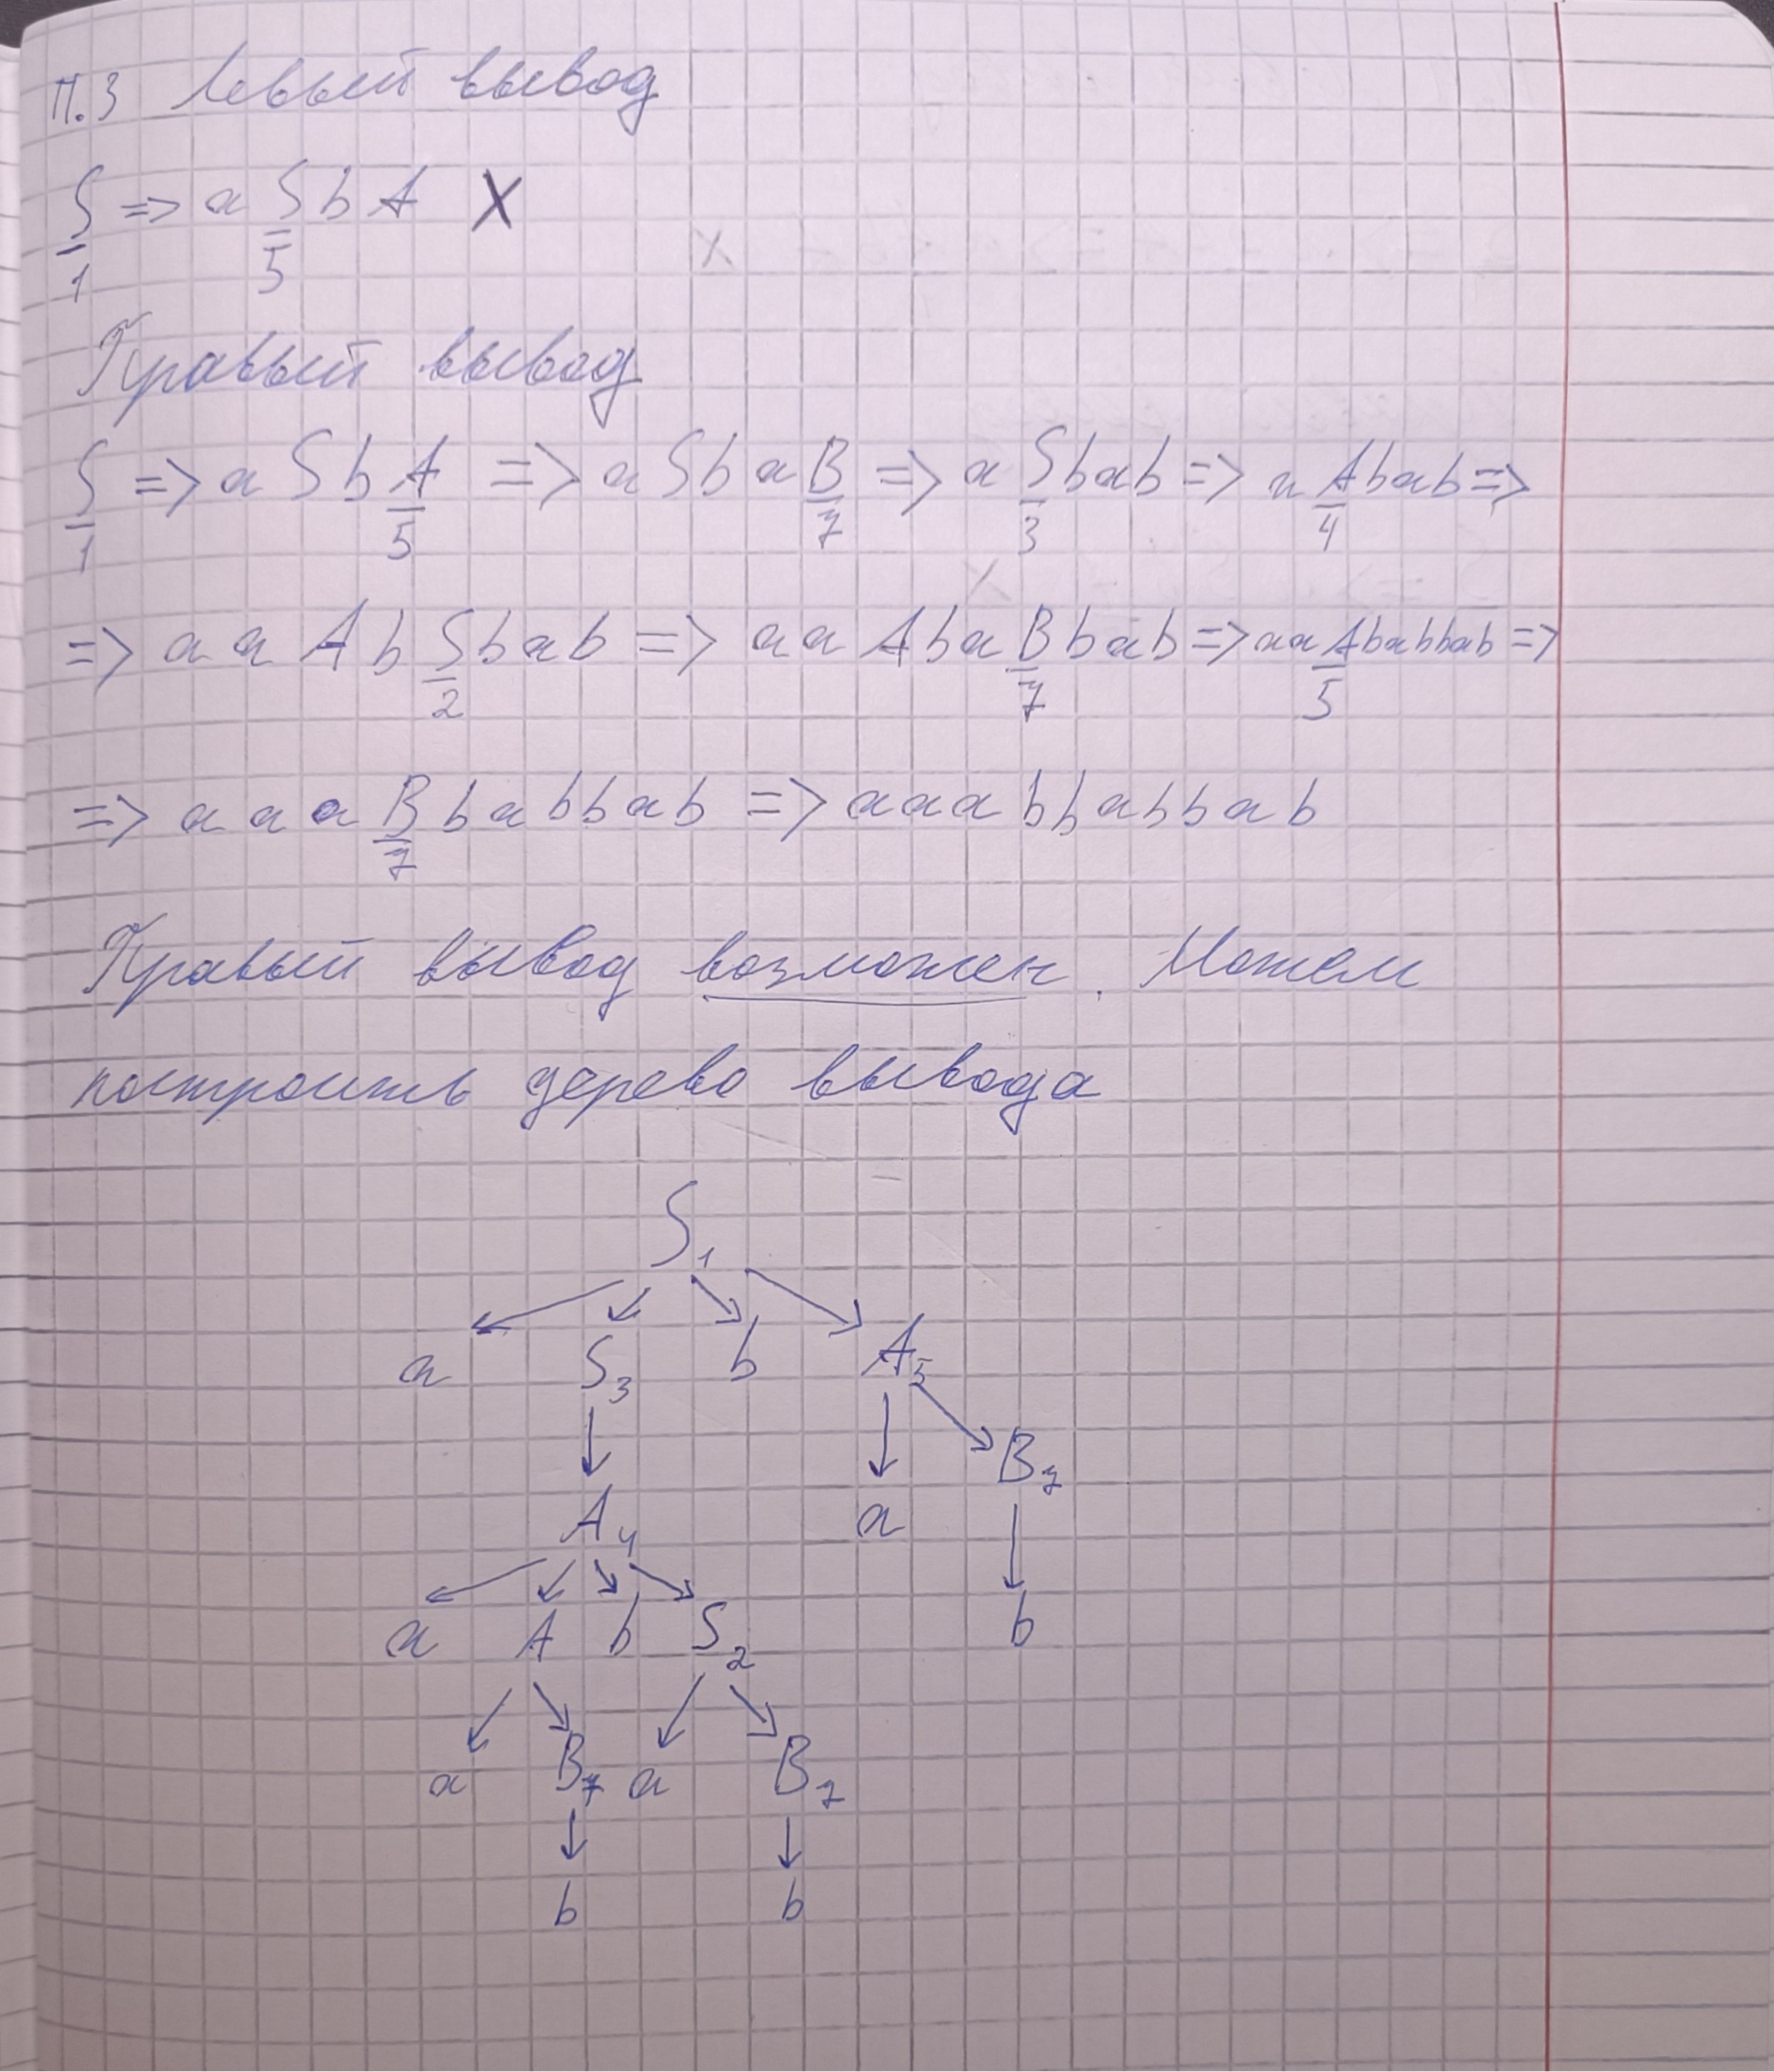 П.3 Левый вывод
S => a S b A X
1 5
Правый вывод
S => a S b A => a S b a B => a S b a b => a A b a b =>
1 5 7 3 4
=> a a A b S b a b => a a A b a B b a b => a a A b a b b a b =>
2 7 5
=> a a a B b a b b a b => a a a b b a b b a b
7
Правый вывод возможен. Можем
построить дерево вывода
S1
a S3 b A5
B7
A4 a
a A b S2 b
a B7 a B7
b b